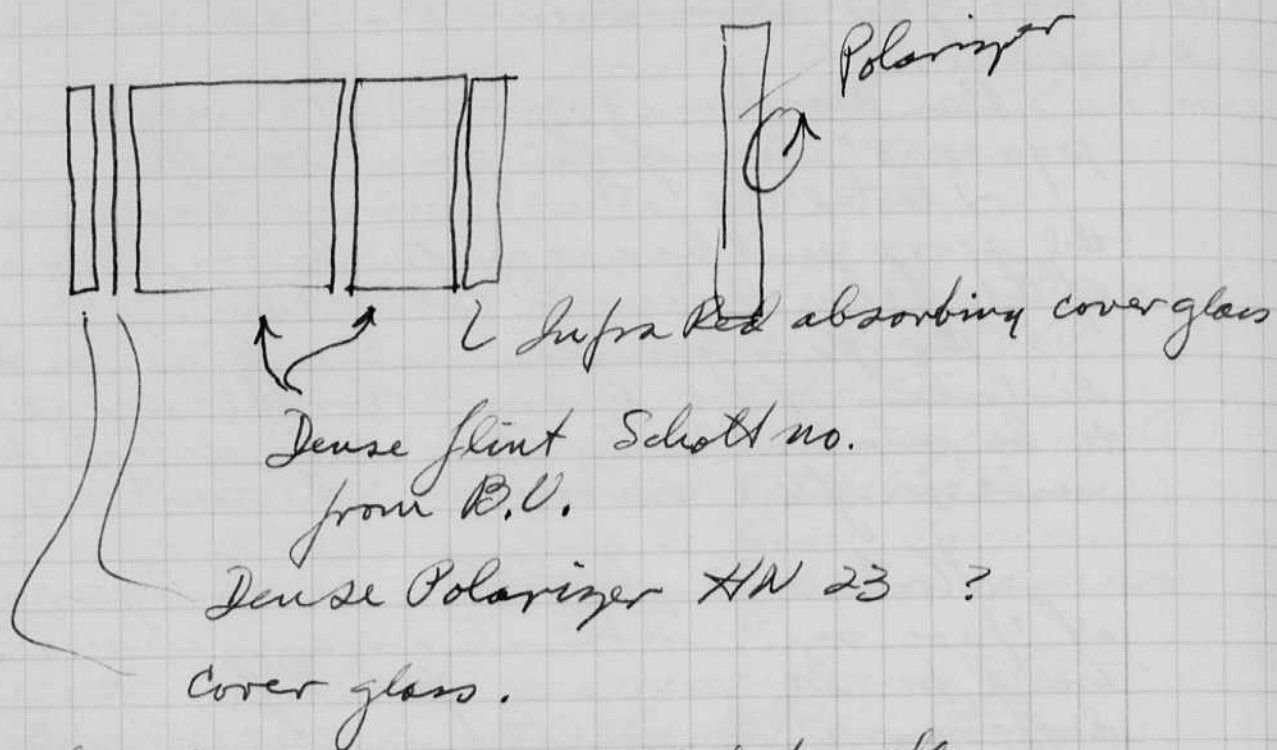 Polarizer
Infra Red absorbing cover glass
Dense flint Schott no.
from B.U.
Dense Polarizer HN 23 ?
Cover glass.